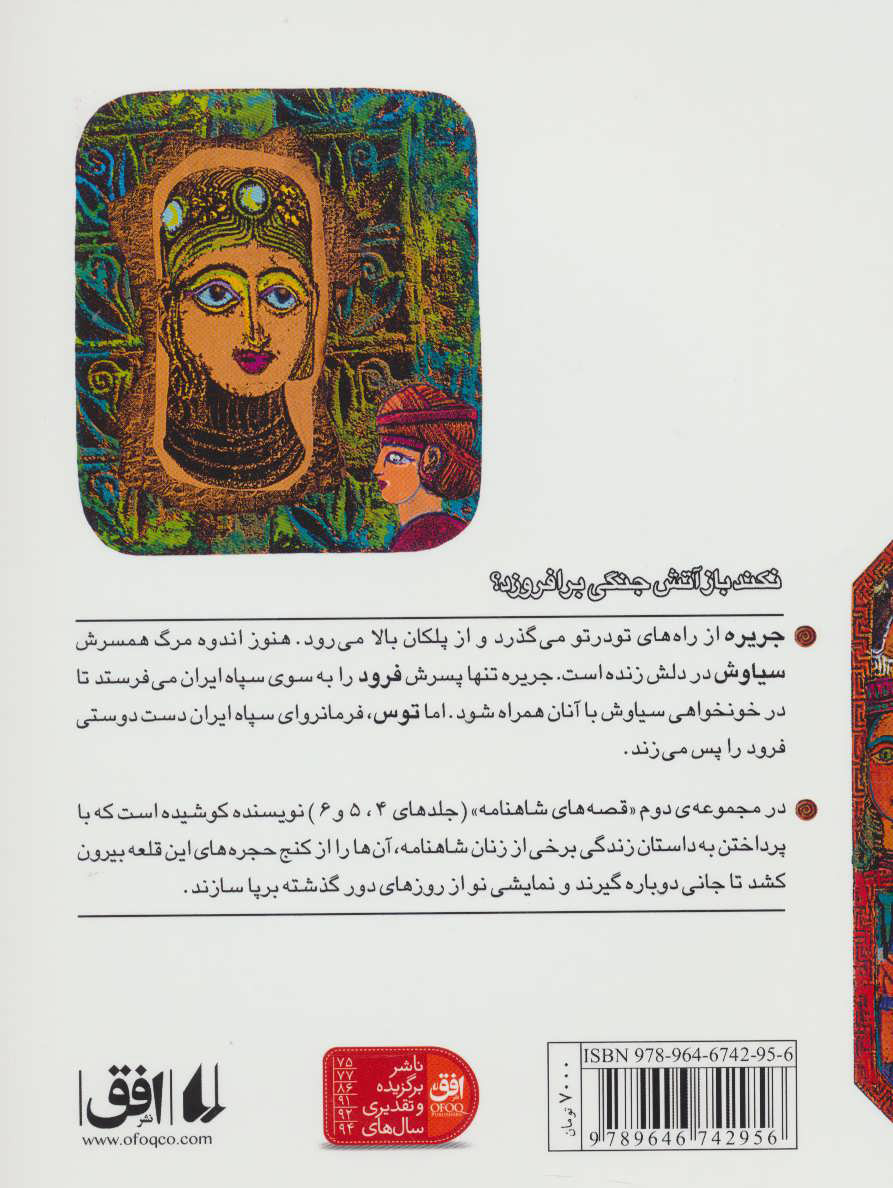 نکند باز آتش جنگی برافروزد؟
جریره از راه‌های تودرتو می‌گذرد و از پلکان بالا می‌رود. هنوز اندوه مرگ همسرش
سیاوش در دلش زنده است. جریره تنها پسرش فرود را به سوی سپاه ایران می‌فرستد تا
در خونخواهی سیاوش با آنان همراه شود. اما توس، فرمانروای سپاه ایران دست دوستی
فرود را پس می‌زند.
در مجموعه‌ی دوم «قصه‌های شاهنامه» (جلدهای ۴، ۵ و ۶) نویسنده کوشیده است که با
پرداختن به داستان زندگی برخی از زنان شاهنامه، آن‌ها را از کنج حجره‌های این قلعه بیرون
کشد تا جانی دوباره گیرند و نمایشی نو از روزهای دور گذشته برپا سازند.
نشر افق
www.ofoqco.com
ناشر
برگزیده
و تقدیری
سال‌های
۷۵
۷۷
۸۶
۹۱
۹۲
۹۴
افق
نشر
OFOQ
PUBLISHERS
ISBN 978-964-6742-95-6
9 789646 742956
۷۰۰۰ تومان